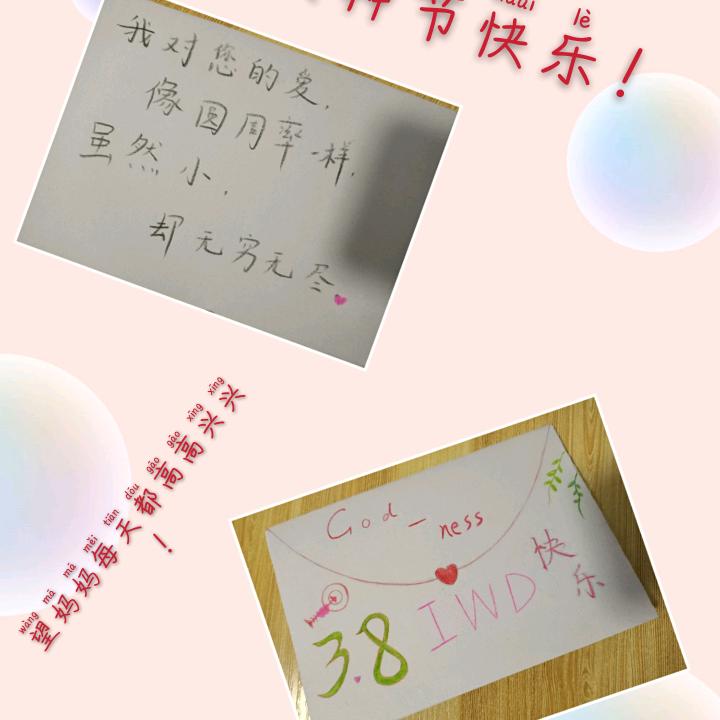 lè
节快乐！
我对您的爱，
像圆周率一样，
虽然小，
却无穷无尽。
wàng mā mā měi tiān dōu gāo gāo xīng xīng
望妈妈每天都高高兴兴
！
God-ness
快乐
3.8 IWD